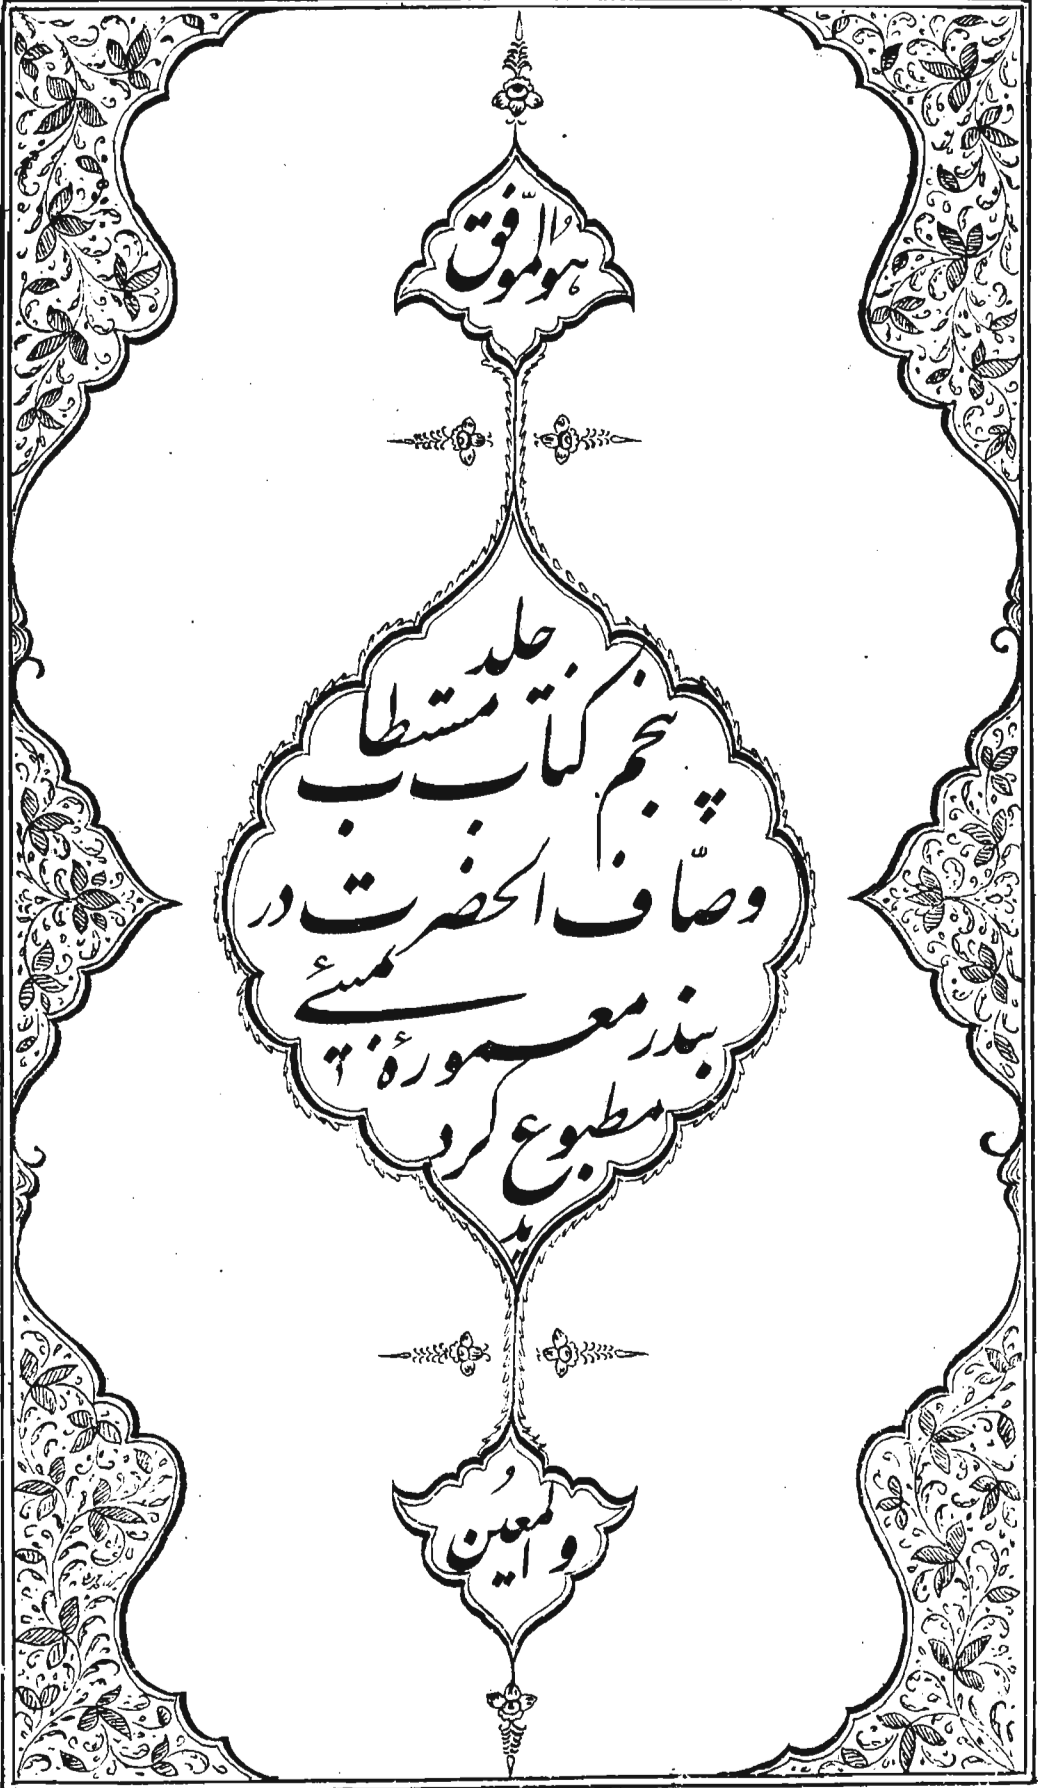 هوالموّفق
جلد
پنجم کتاب مستطاب
وصّاف الحضرت در
بندر معمورهٔ بمبئی
مطبوع کرد
ید
والمعین